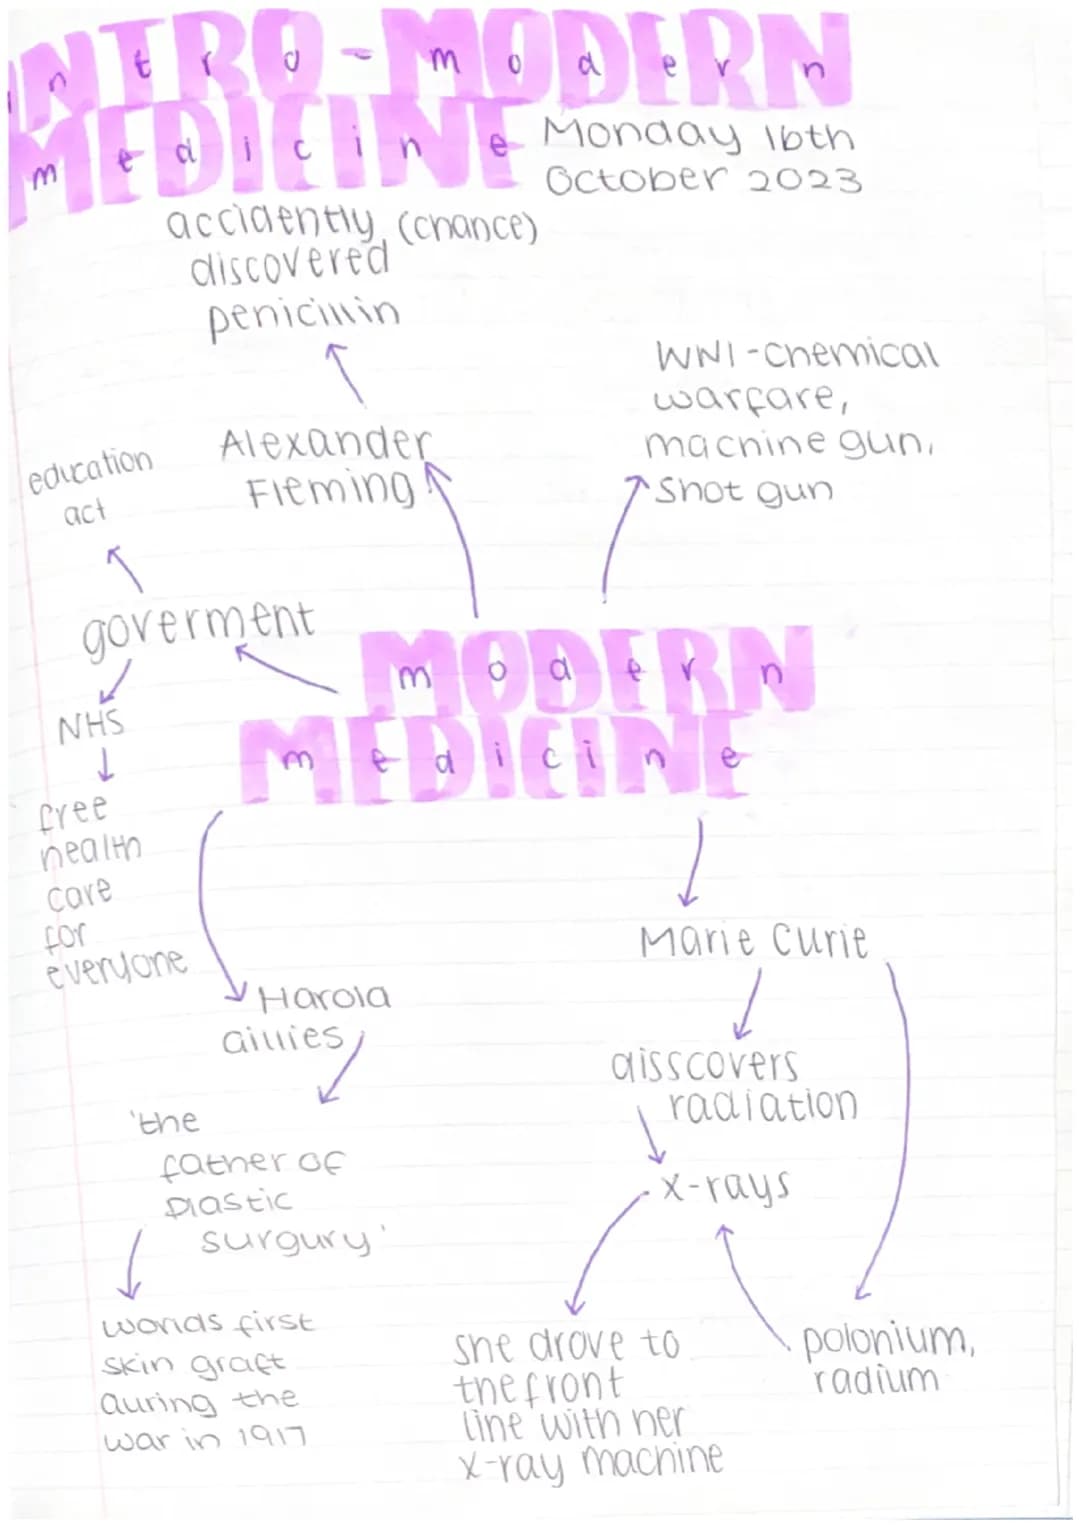 INTRO-MODERN
intro-modern
MEDICINE
medicine
Monday 16th
October 2023
accidently (chance)
discovered
penicillin
Alexander
Fleming
WW1-Chemical
warfare,
machine gun,
Shot gun
education
act
goverment
NHS
free
health
care
for
everyone
MODERN
modern
MEDICINE
medicine
Harold
Gillies
'the
father of
plastic
surgury'
worlds first
skin graft
during the
war in 1917
Marie Curie
disscovers
radiation
x-rays
she drove to
the front
line with her
x-ray machine
polonium,
radium